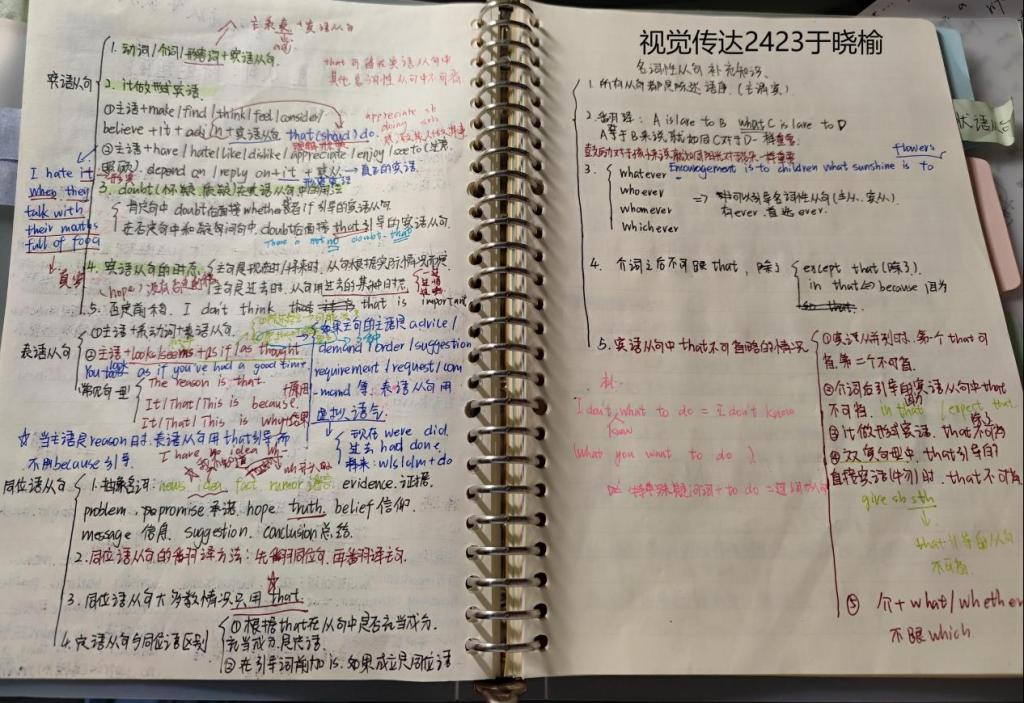 主系表+宾语从句
宾语从句
1. 动词/介词/形容词+宾语从句.
that可
其他名词性从句中不可省
2. it做形式宾语
①主语+make/find/think/feel/consider/
believe+it+adj/n+宾语从句 that(should)do.
appreciate sb
doing sth
②主语+have/hate/like/dislike/appreciate/enjoy/see to
depend on/reply on+it+ 真正的宾语.
I hate it
when they
talk with
their mouths
full of food
3. doubt(怀疑,质疑)在宾语从句中的用法
肯定句中doubt后面接whether或者if引导的宾语从句
在否定句中和疑问句中doubt后面接that引导的宾语从句.
no doubt that
4. 宾语从句的时态
主句是现在时/将来时,从句根据实际情况而定
主句是过去时,从句用过去的某种时态
5. 否定前移. I don't think that is important
表语从句
①主语+系动词+表语从句.
②主语+look/seems+as if/as thought
You look as if you've had a good time
常见句型
The reason is that.
It/That/This is because. +原因
It/That/This is why+结果
如果主句的主语是advice/
demand/order/suggestion
requirement/request/com
-mand等,表语从句用
虚拟语气
现在 were did.
过去 had done.
将来:w/s/c/m+do
☆ 当主语是reason时.表语从句用that引导而
不用because引导.
I have no idea wh-
同位语从句
1. 抽象名词: news idea fact rumor谣言 evidence.证据
problem. promise承诺. hope. truth. belief信仰.
message 信息. suggestion. conclusion总结.
2. 同位语从句的翻译方法:先翻译同位句,再翻译主句.
3. 同位语从句大多数情况只用that.
4. 定语从句与同位语区别
①根据that在从句中是否充当成分.
充当成分.是定语
②在引导词前加is.如果成立是同位语
视觉传达2423于晓榆
名词性从句补充知识.
1. 所有从句都是陈述语序.(主谓宾)
2. 翻译: A is/are to B what C is/are to D
A等于B来说,就如同C对于D一样重要.
flowers
Encouragement is to children what sunshine is to
3. whatever
whoever
whomever
whichever
=> 都可以引导名词性从句(主从.宾从).
有ever.首选ever.
4. 介词之后不可跟that,除了
except that(除了).
in that<=>because 因为
5. 宾语从句中that不可省略的情况
①宾语从并列时.第一个that可
省.第二个不可省.
②介词后引导的宾语从句中that
不可省. in that/expect that
③it做形式宾语.that不可省
④双宾句型中,that引导的
直接宾语(物)时.that不可省
give sb sth
that引导的从句
不可省.
⑤ 介+what/whether
不跟which.
补.
I don't what to do = I don't know
know
what you want to do )
特殊疑问词+to do =